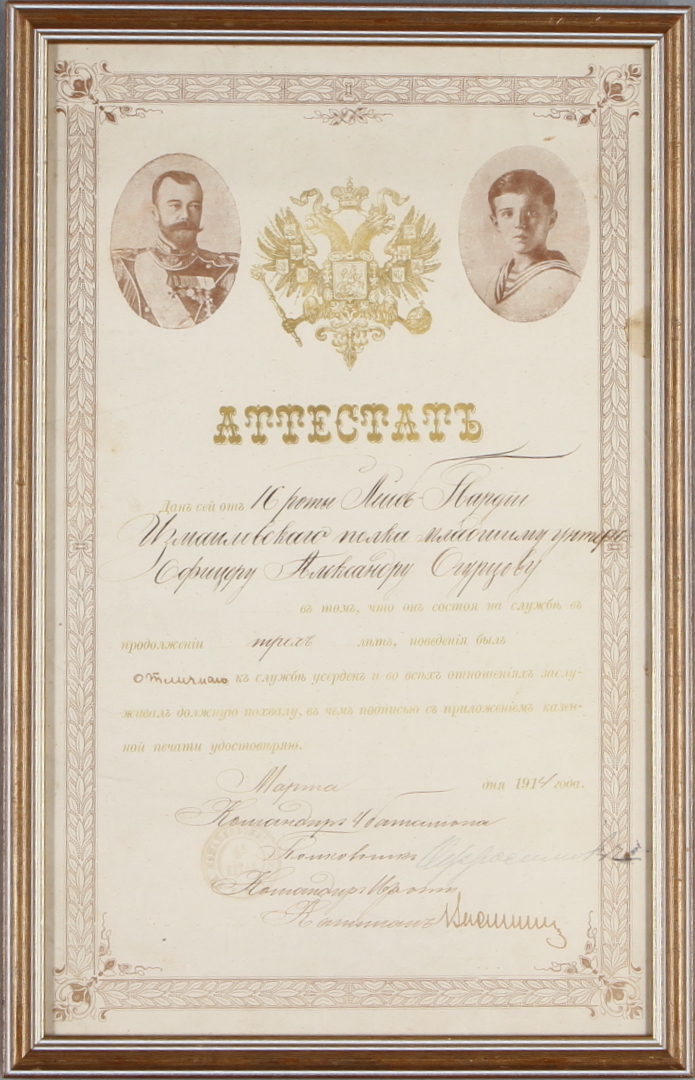 АТТЕСТАТЪ
Данъ сей отъ 16 роты Лейбъ-Гвардіи
Измайловскаго полка младшему унтеръ
Офицеру Александру Огурцеву
въ томъ, что онъ состоя на службѣ въ
продолженіи трехъ лѣтъ, поведенія былъ
отличнаго къ службѣ усерденъ и во всѣхъ отношеніяхъ заслу-
живалъ должную похвалу, въ чемъ подписью съ приложеніемъ казен-
ной печати удостовѣряю.
Марта дня 1914 года.
Командиръ 4 баталіона
Полковникъ
Командиръ 16 роты
Капитанъ